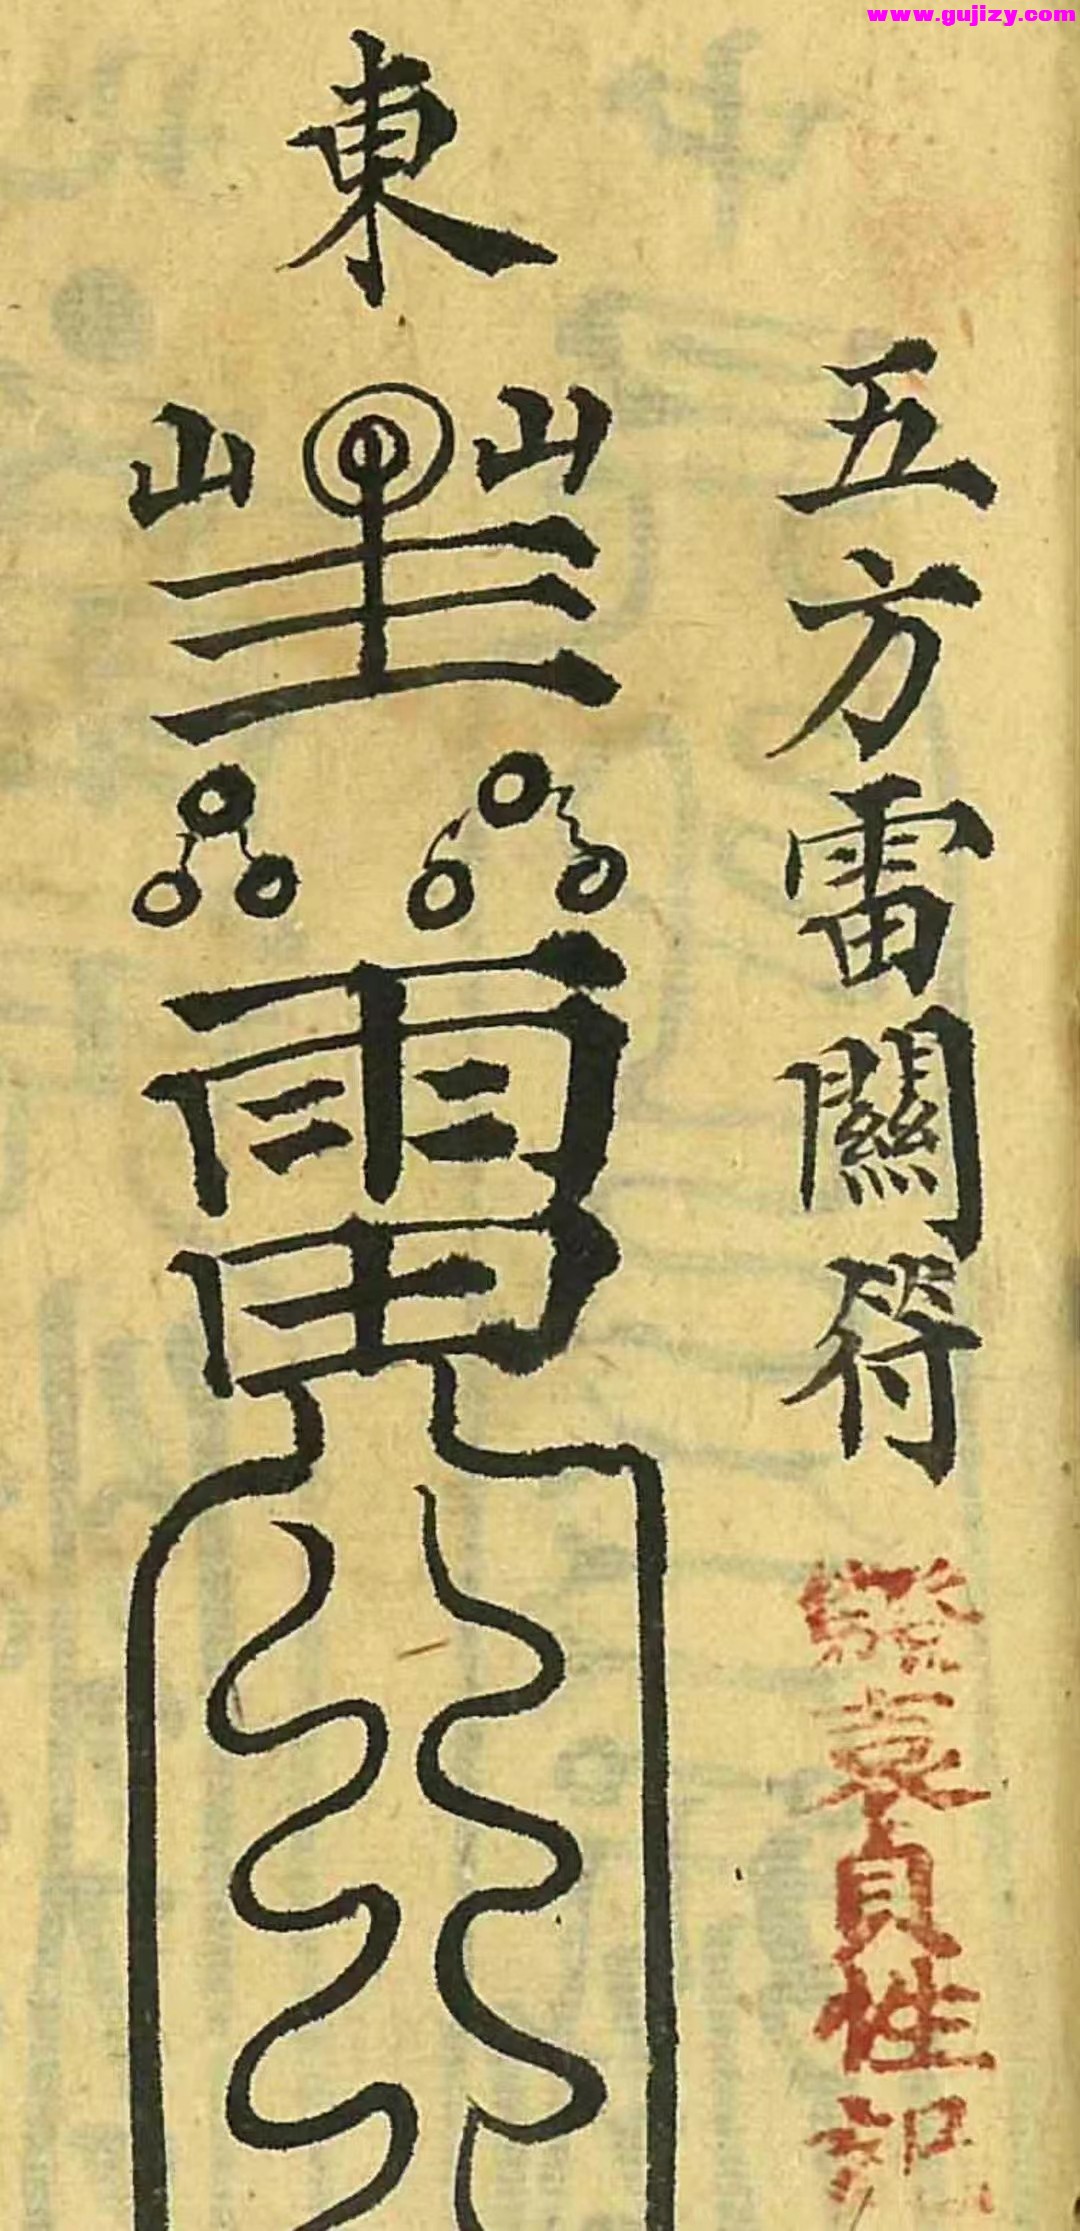 www.gujizy.com
五方雷關符
袁貞性記
東
山 山
雷